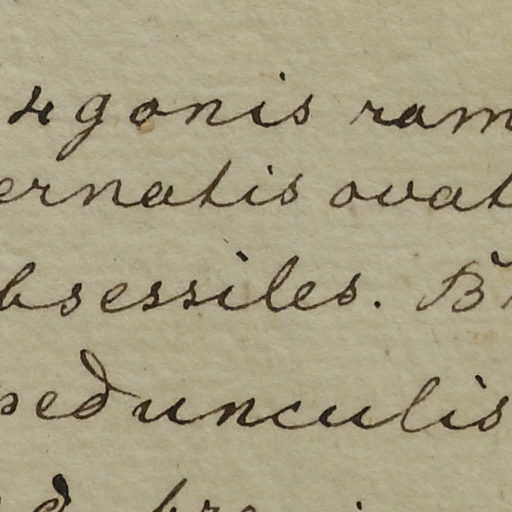 4gonis ram
ernatis ovat
bsessiles. B
pedunculis